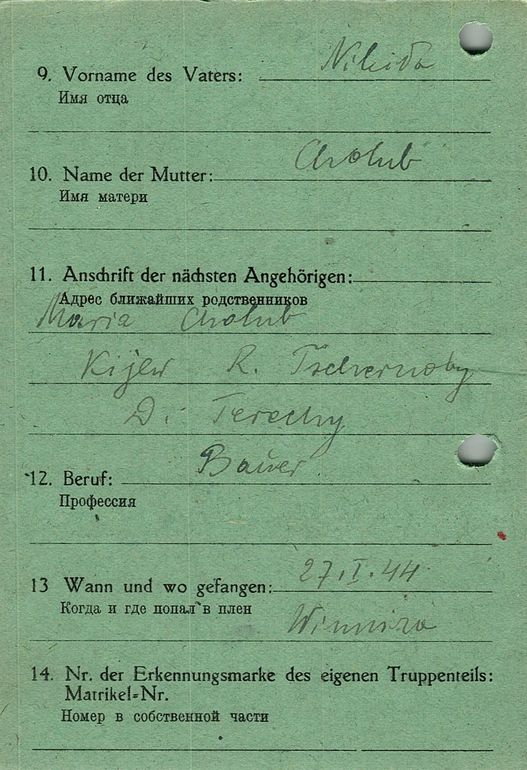 9. Vorname des Vaters: Nikida
Имя отца
10. Name der Mutter: Cholub
Имя матери
11. Anschrift der nächsten Angehörigen:
Адрес ближайших родственников
Maria Cholub
Kijew R. Tschernoby
D. Terechy
12. Beruf: Bauer
Профессия
13 Wann und wo gefangen: 27.I.44
Когда и где попал в плен
Winniza
14. Nr. der Erkennungsmarke des eigenen Truppenteils:
Matrikel-Nr.
Номер в собственной части